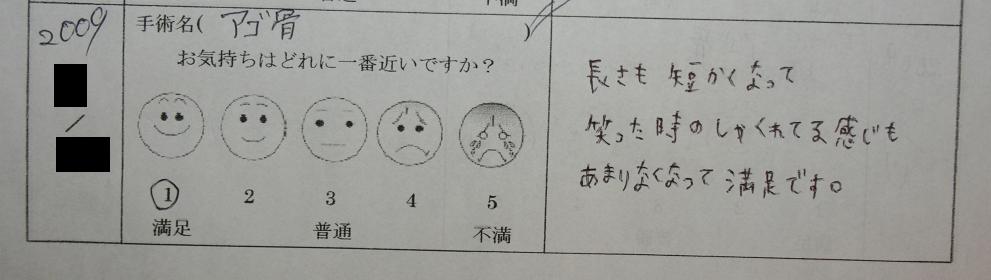 不満
2009
手術名(アゴ骨)
お気持ちはどれに一番近いですか？
1 2 3 4 5
満足 普通 不満
長さも短かくなって
笑った時のしゃくれてる感じも
あまりなくなって満足です。